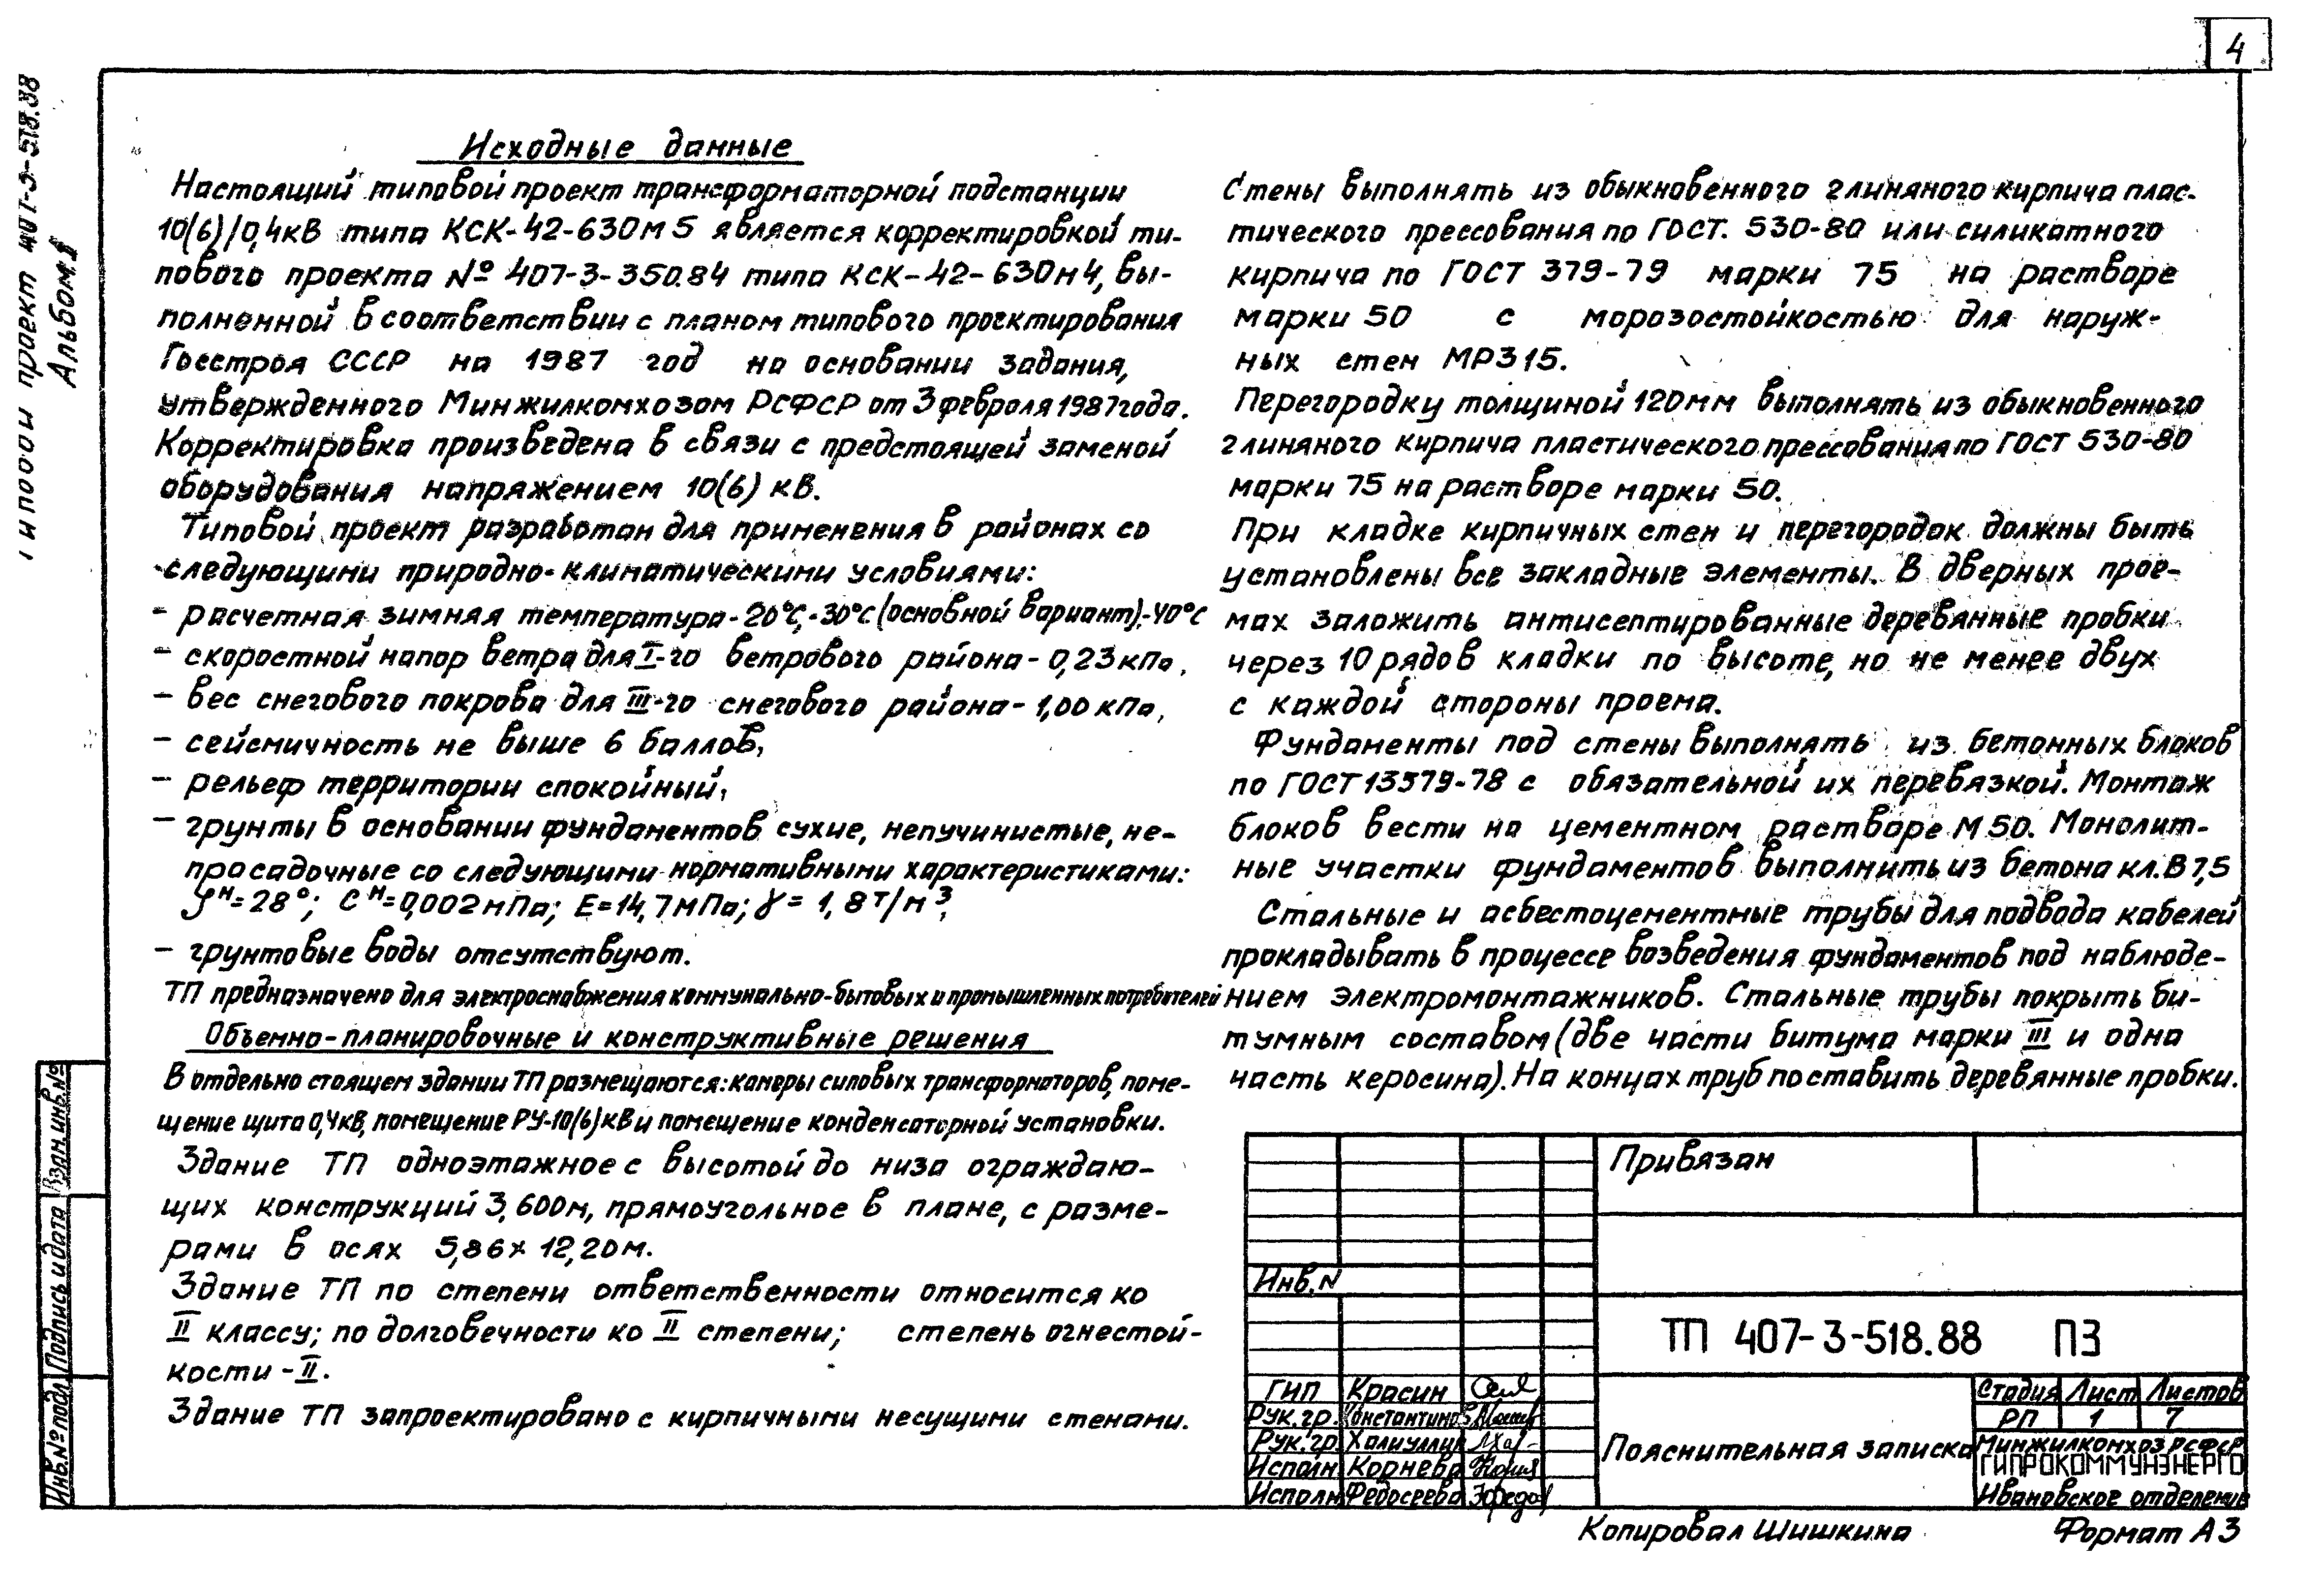 4
Типовой проект 407-3-518.88
Альбом 1
Исходные данные
Настоящий типовой проект трансформаторной подстанции
10(6)/0,4кВ типа КСК-42-630М5 является корректировкой ти-
пового проекта № 407-3-350.84 типа КСК-42-630М4, вы-
полненной в соответствии с планом типового проектирования
Госстроя СССР на 1987 год на основании задания,
утвержденного Минжилкомхозом РСФСР от 3 февраля 1987года.
Корректировка произведена в связи с предстоящей заменой
оборудования напряжением 10(6) кВ.
Типовой проект разработан для применения в районах со
следующими природно-климатическими условиями:
- расчетная зимняя температура -20°С, -30°С (основной вариант), -40°С
- скоростной напор ветра для I-го ветрового района - 0,23 кПа,
- вес снегового покрова для III-го снегового района - 1,00 кПа,
- сейсмичность не выше 6 баллов,
- рельеф территории спокойный,
- грунты в основании фундаментов сухие, непучинистые, не-
просадочные со следующими нормативными характеристиками:
φн=28°; Сн=0,002мПа; Е=14,7мПа; γ= 1,8т/м³,
- грунтовые воды отсутствуют.
ТП предназначено для электроснабжения коммунально-бытовых и промышленных потребителей
Объемно-планировочные и конструктивные решения
В отдельно стоящем здании ТП размещаются: камеры силовых трансформаторов, поме-
щение щита 0,4кВ, помещение РУ-10(6)кВ и помещение конденсаторной установки.
Здание ТП одноэтажное с высотой до низа ограждаю-
щих конструкций 3,600м, прямоугольное в плане, с разме-
рами в осях 5,86х12,20м.
Здание ТП по степени ответственности относится ко
II классу; по долговечности ко II степени; степень огнестой-
кости - II.
Здание ТП запроектировано с кирпичными несущими стенами.
Стены выполнять из обыкновенного глиняного кирпича плас-
тического прессования по ГОСТ. 530-80 или силикатного
кирпича по ГОСТ 379-79 марки 75 на растворе
марки 50 с морозостойкостью для наруж-
ных стен МРЗ 15.
Перегородку толщиной 120мм выполнять из обыкновенного
глиняного кирпича пластического прессования по ГОСТ 530-80
марки 75 на растворе марки 50.
При кладке кирпичных стен и перегородок должны быть
установлены все закладные элементы. В дверных прое-
мах заложить антисептированные деревянные пробки
через 10 рядов кладки по высоте, но не менее двух
с каждой стороны проема.
Фундаменты под стены выполнять из бетонных блоков
по ГОСТ 13579-78 с обязательной их перевязкой. Монтаж
блоков вести на цементном растворе М50. Монолит-
ные участки фундаментов выполнить из бетона кл. В 7,5
Стальные и асбестоцементные трубы для подвода кабелей
прокладывать в процессе возведения фундаментов под наблюде-
нием электромонтажников. Стальные трубы покрыть би-
тумным составом (две части битума марки III и одна
часть керосина). На концах труб поставить деревянные пробки.
Взам. инв. №
Подпись и дата
Инв. № подл
Привязан
Инв. N
ТП 407-3-518.88 ПЗ
ГИП Красин
Рук. гр. Константинов
Рук. гр. Халиуллин
Исполн Корнева
Исполн Федосеева
Пояснительная записка
Стадия Лист Листов
РП 1 7
Минжилкомхоз РСФСР
ГИПРОКОММУНЭНЕРГО
Ивановское отделение
Копировал Шишкина
Формат А3